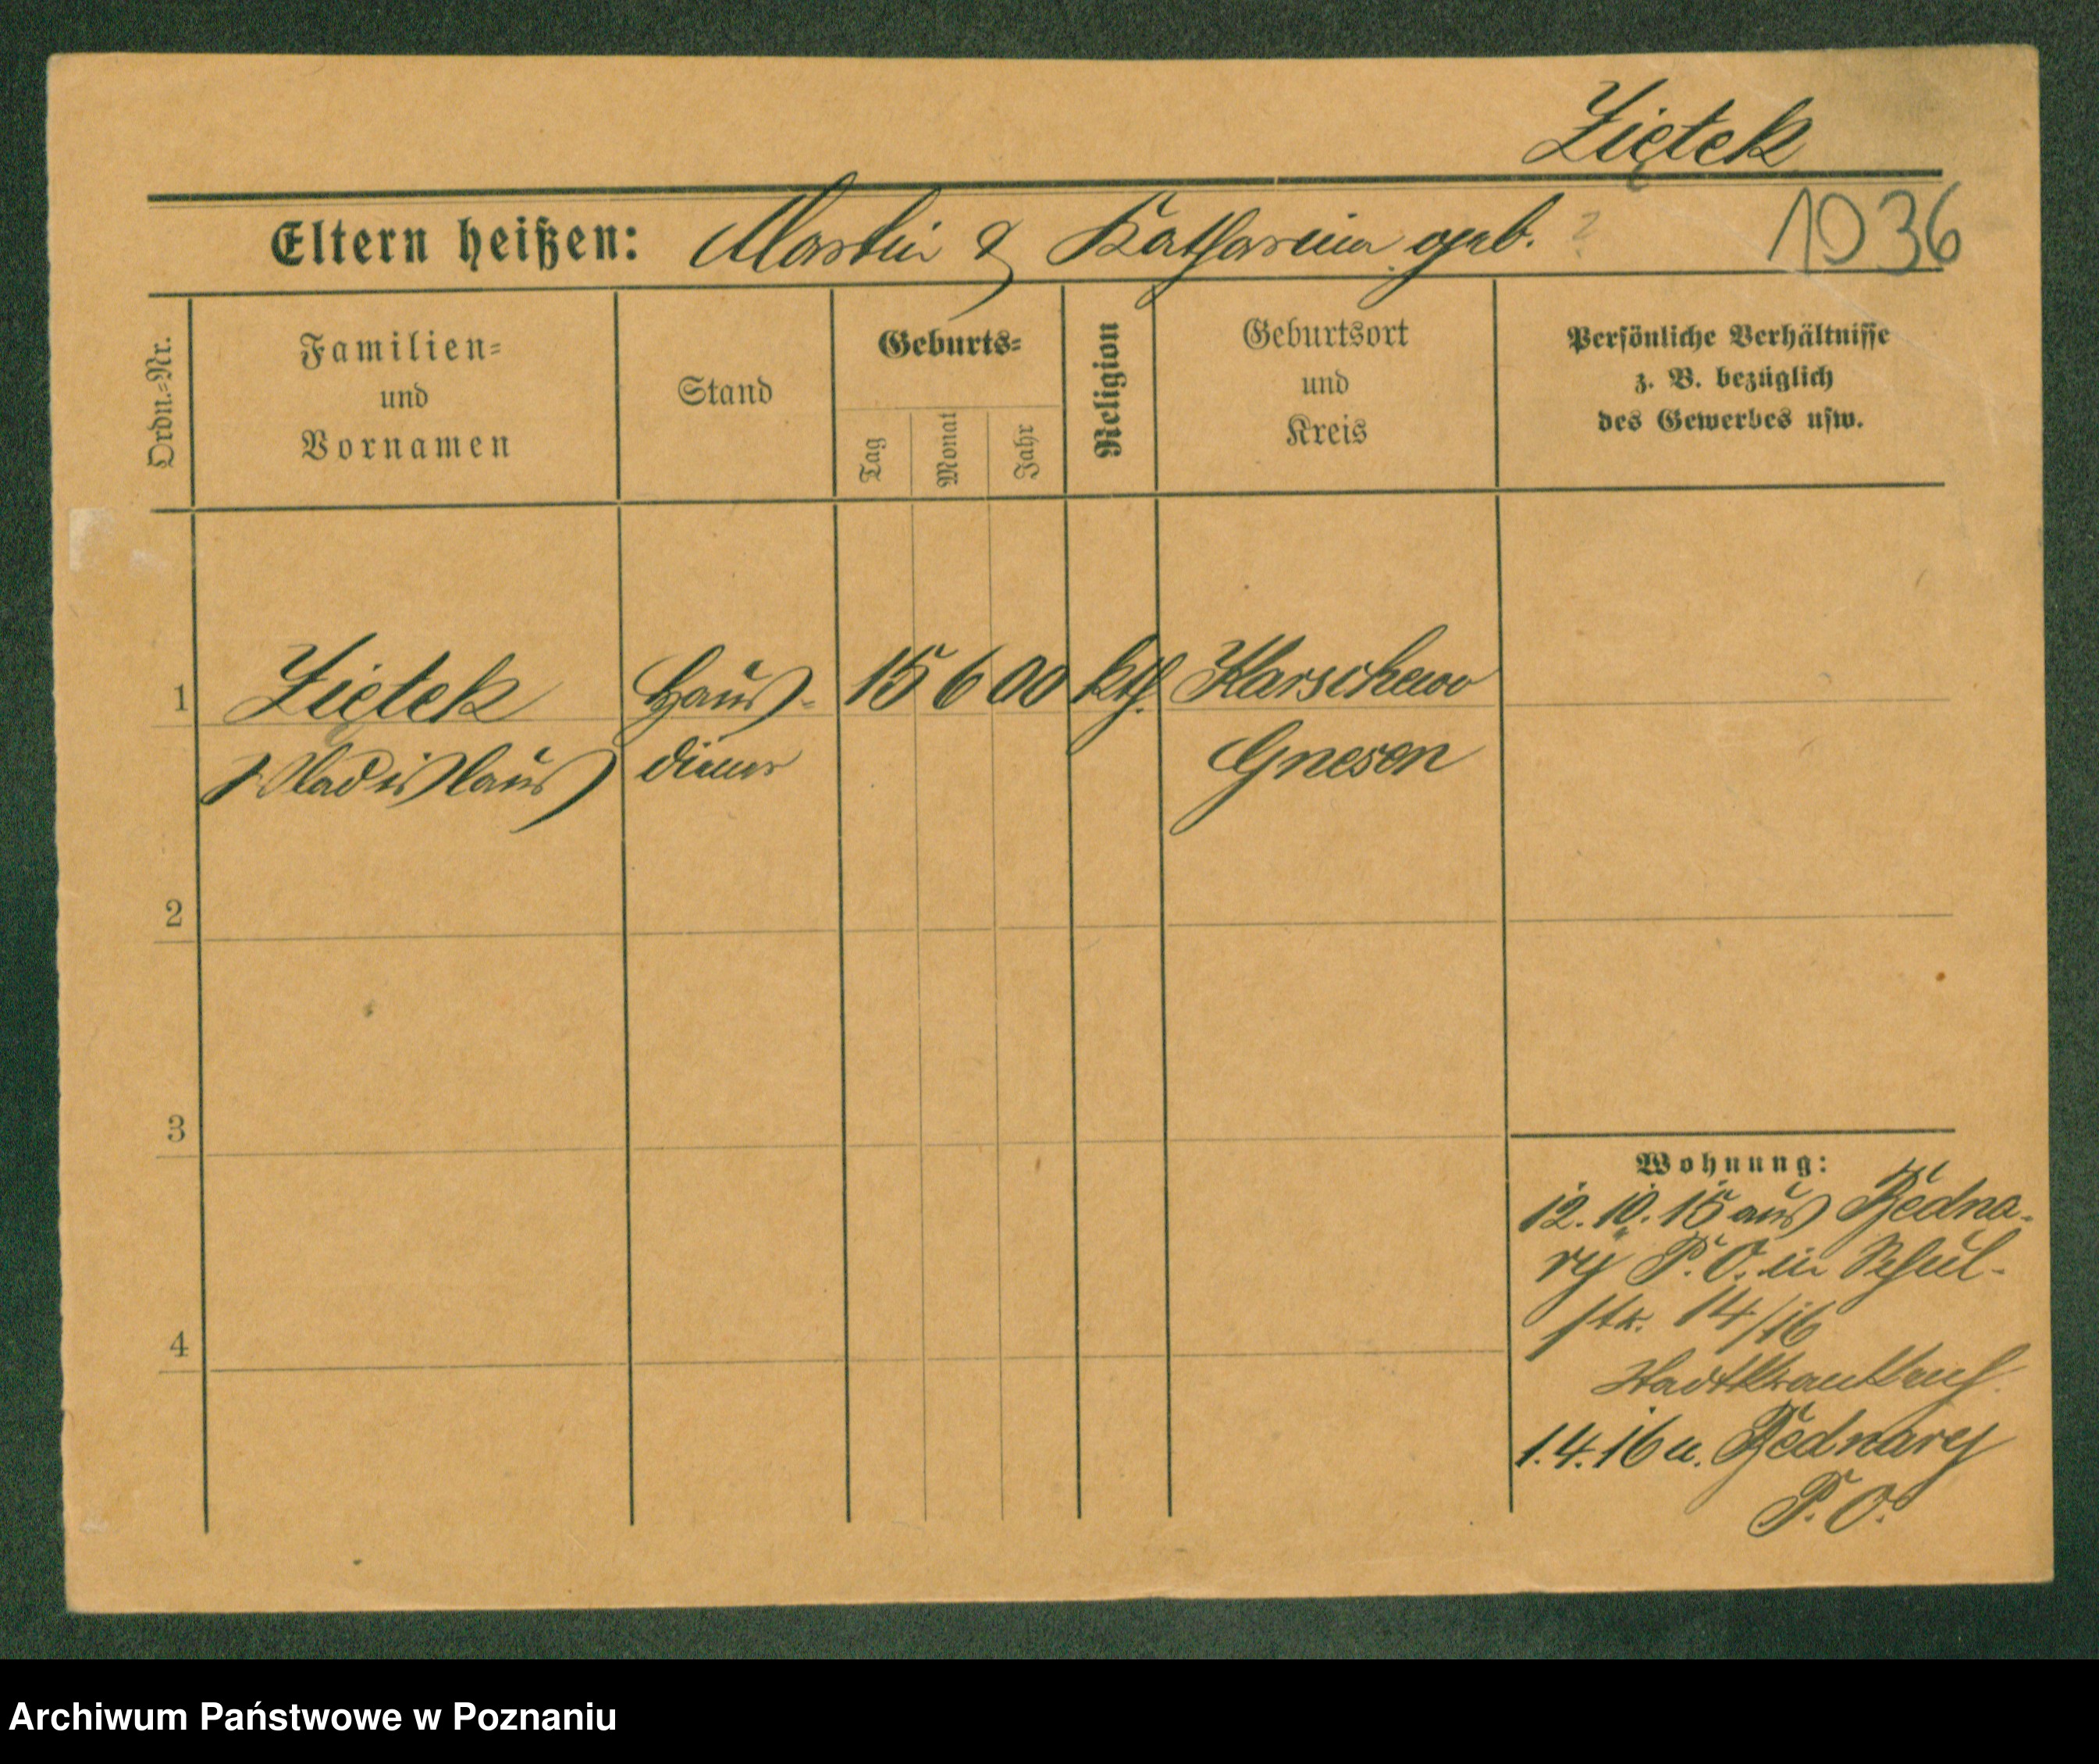 Ziętek
Eltern heißen: Martin & Katharina geb. ?
1036
Ordn.-Nr.
Familien-
und
Vornamen
Stand
Geburts-
Tag
Monat
Jahr
Religion
Geburtsort
und
Kreis
Persönliche Verhältnisse
z. B. bezüglich
des Gewerbes usw.
1 Ziętek Haus- 15 6 00 kth. Karschewo
Wladislaus diener Gnesen
2
3
4
Wohnung:
12.10.15 aus Bedna-
ry P. O. in Schul-
str. 14/16
Stadtkrankenh.
1.4.16 n. Bednary
P. O.
Archiwum Państwowe w Poznaniu